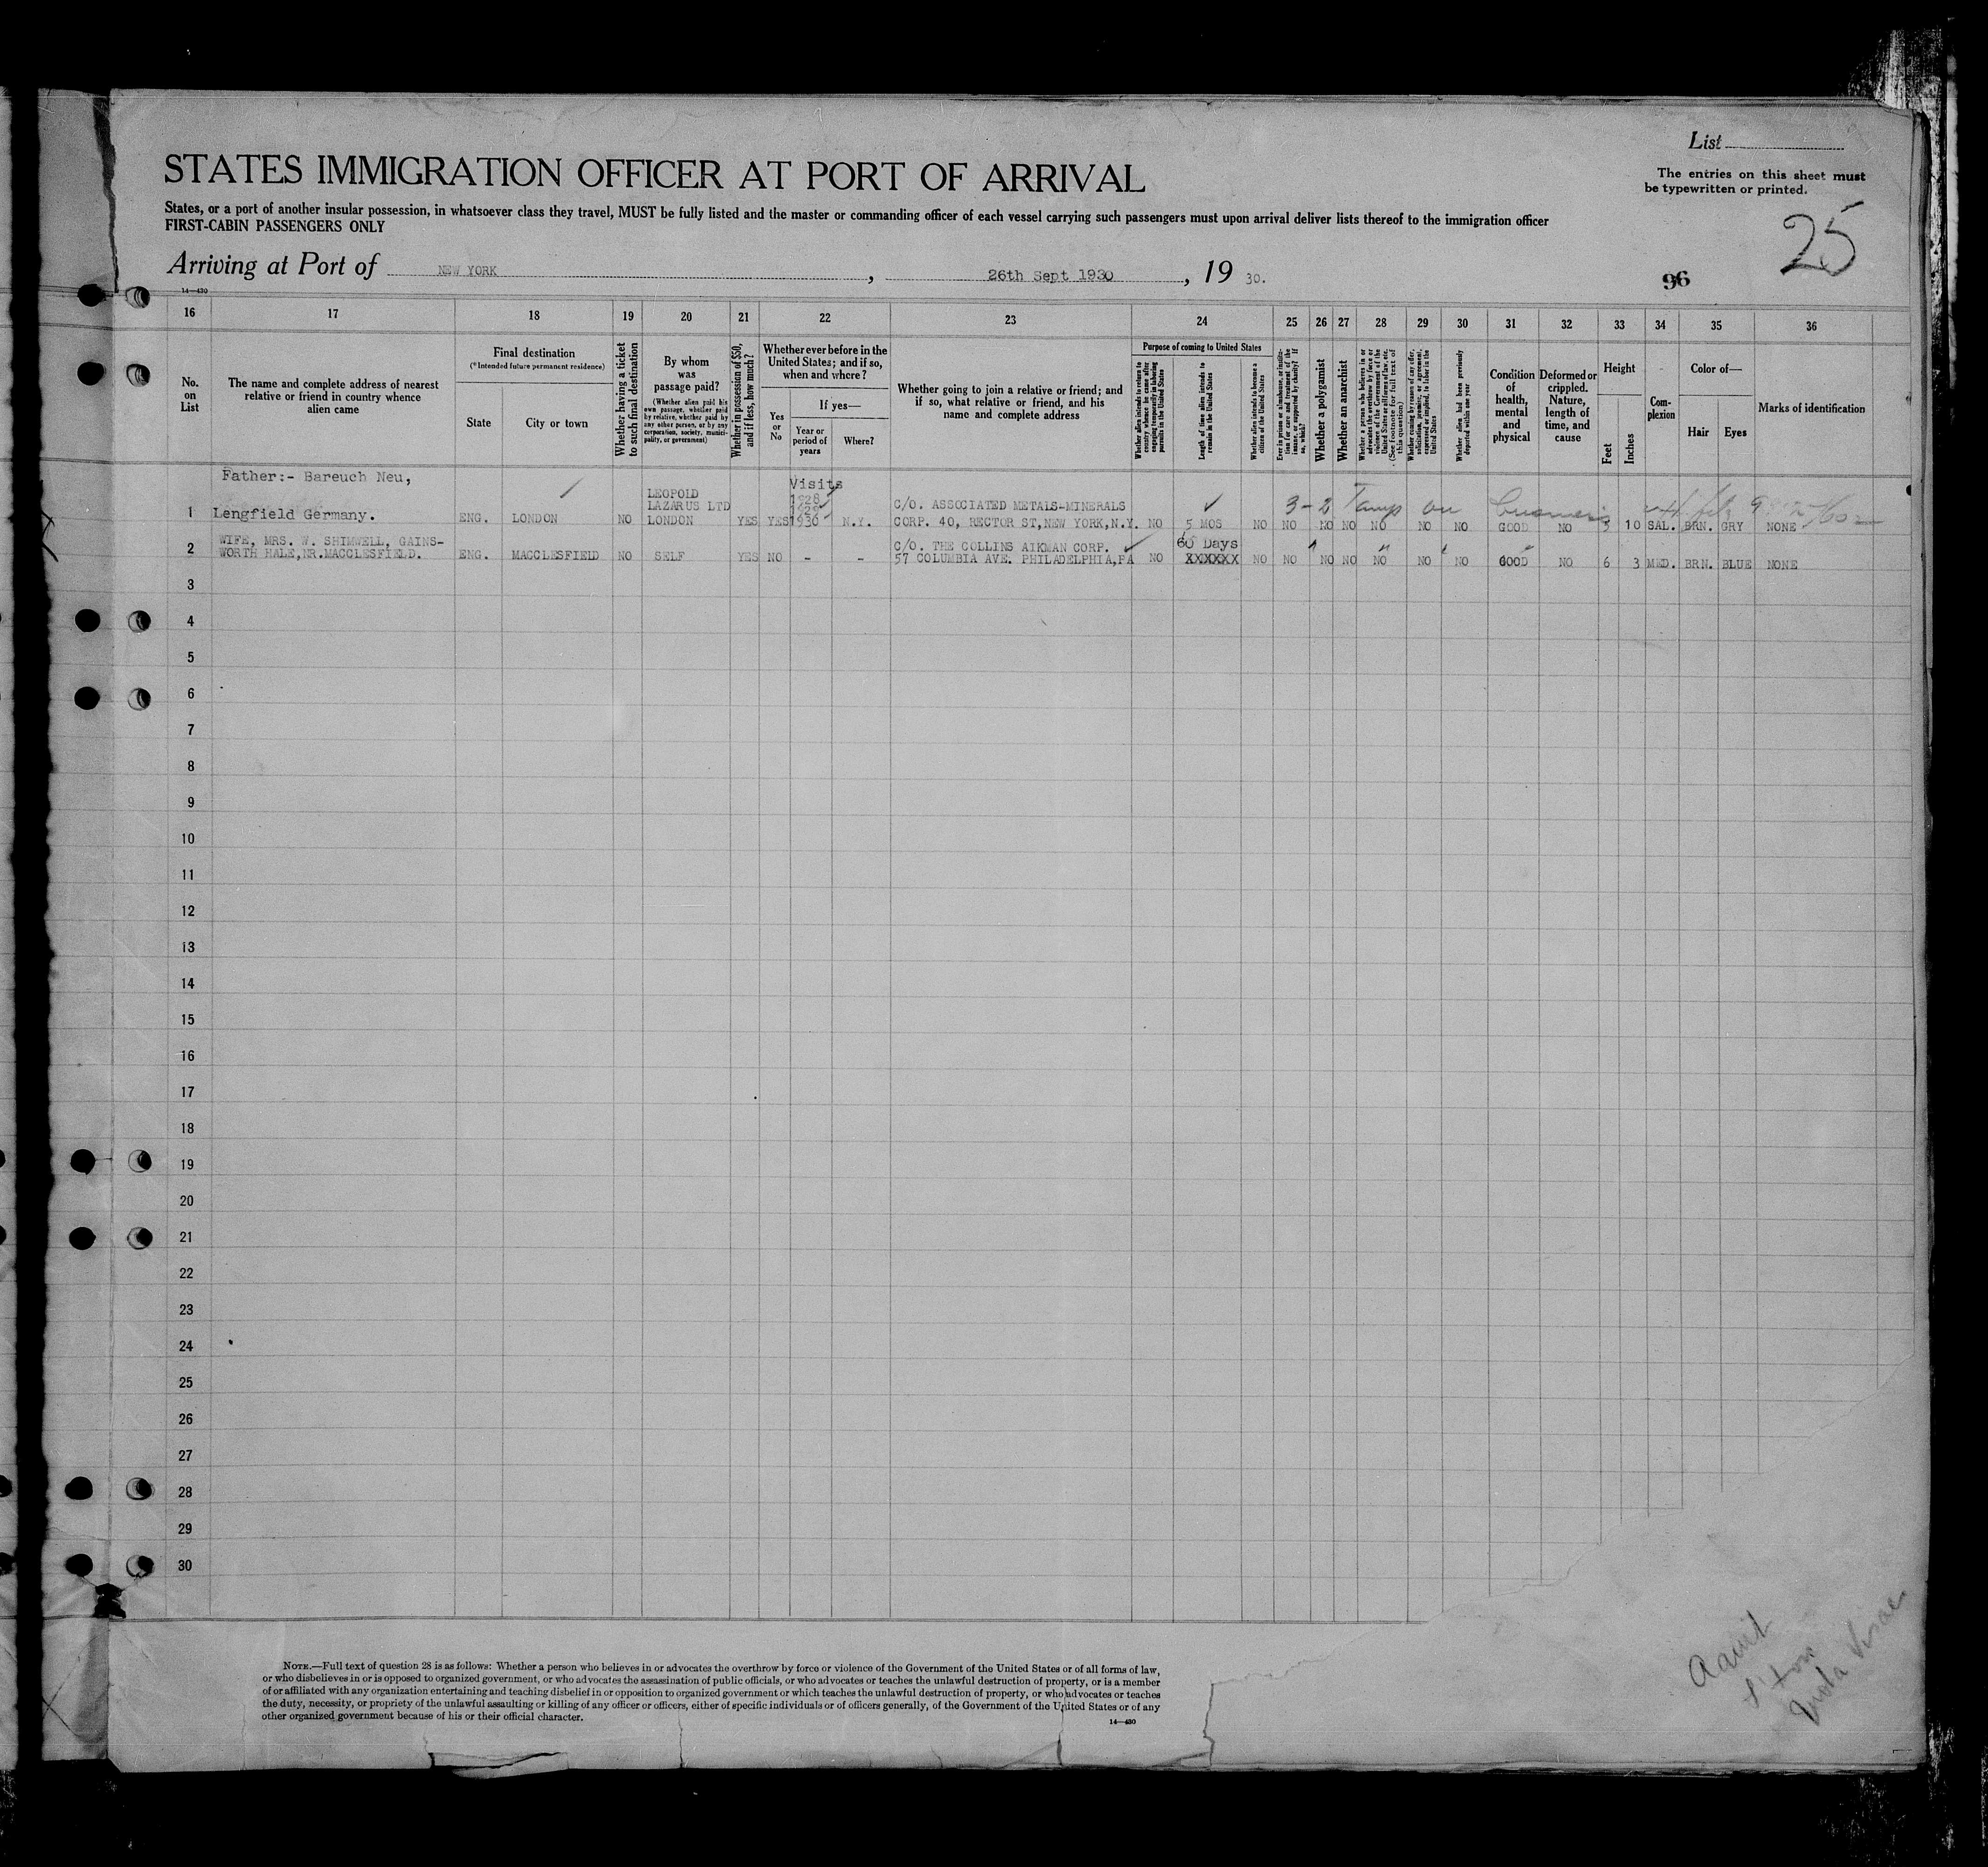 List
STATES IMMIGRATION OFFICER AT PORT OF ARRIVAL
The entries on this sheet must
be typewritten or printed.
States, or a port of another insular possession, in whatsoever class they travel, MUST be fully listed and the master or commanding officer of each vessel carrying such passengers must upon arrival deliver lists thereof to the immigration officer
FIRST-CABIN PASSENGERS ONLY
25
Arriving at Port of NEW YORK, 26th Sept 1930, 19 30.
96
14—430
16 17 18 19 20 21 22 23 24 25 26 27 28 29 30 31 32 33 34 35 36
No. on List
The name and complete address of nearest relative or friend in country whence alien came
Final destination
(*Intended future permanent residence)
State
City or town
Whether having a ticket to such final destination
By whom was passage paid?
(Whether alien paid his own passage, whether paid by relative, whether paid by any other person, or by any corporation, society, municipality, or government)
Whether in possession of $50, and if less, how much?
Whether ever before in the United States; and if so, when and where?
Yes or No
If yes—
Year or period of years
Where?
Whether going to join a relative or friend; and if so, what relative or friend, and his name and complete address
Purpose of coming to United States
Whether alien intends to return to country whence he came after engaging temporarily in laboring pursuits in the United States
Length of time alien intends to remain in the United States
Whether alien intends to become a citizen of the United States
Ever in prison or almshouse, or institution for care and treatment of the insane, or supported by charity? If so, which?
Whether a polygamist
Whether an anarchist
Whether a person who believes in or advocates the overthrow by force or violence of the Government of the United States or all forms of law, etc. (See footnote for full text of this question)
Whether coming by reason of any offer, solicitation, promise, or agreement, expressed or implied, to labor in the United States
Whether alien had been previously deported within one year
Condition of health, mental and physical
Deformed or crippled. Nature, length of time, and cause
Height
Feet
Inches
Complexion
Color of—
Hair
Eyes
Marks of identification
Father:- Bareuch Neu,
Visits
LEOPOLD
LAZARUS LTD
1928
C/O. ASSOCIATED METALS-MINERALS
3-2
1 Lengfield Germany. ENG. LONDON NO LONDON YES YES 1930 N.Y. CORP. 40, RECTOR ST, NEW YORK, N.Y. NO 5 MOS NO NO NO NO NO NO NO GOOD NO 5 10 SAL. BRN. GRY NONE
WIFE, MRS. W. SHIMWELL, GAINS-
C/O. THE COLLINS AIKMAN CORP.
60 Days
2 WORTH HALE, NR. MACCLESFIELD. ENG. MACCLESFIELD NO SELF YES NO - - 57 COLUMBIA AVE. PHILADELPHIA, PA NO XXXXXX NO NO NO NO NO NO NO GOOD NO 6 3 MED. BRN. BLUE NONE
3
4
5
6
7
8
9
10
11
12
13
14
15
16
17
18
19
20
21
22
23
24
25
26
27
28
29
30
NOTE.—Full text of question 28 is as follows: Whether a person who believes in or advocates the overthrow by force or violence of the Government of the United States or of all forms of law,
or who disbelieves in or is opposed to organized government, or who advocates the assassination of public officials, or who advocates or teaches the unlawful destruction of property, or is a member
of or affiliated with any organization entertaining and teaching disbelief in or opposition to organized government or which teaches the unlawful destruction of property, or who advocates or teaches
the duty, necessity, or propriety of the unlawful assaulting or killing of any officer or officers, either of specific individuals or of officers generally, of the Government of the United States or of any
other organized government because of his or their official character.
14—430